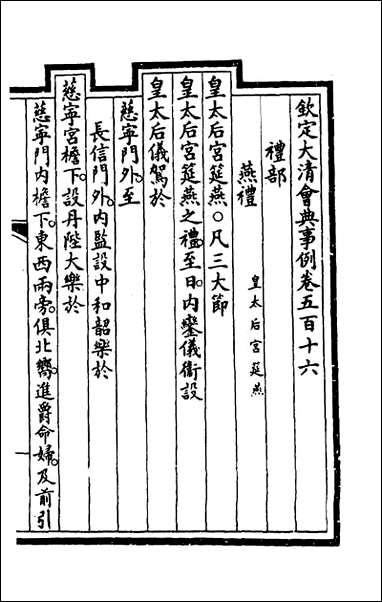 欽定大清會典事例卷五百十六
禮部
燕禮 皇太后宮筵燕
皇太后宮筵燕○凡三大節
皇太后宮筵燕之禮。至日。內鑾儀衞設
皇太后儀駕於
慈寧門外。至
長信門外。內監設中和韶樂於
慈寧宮檐下。設丹陛大樂於
慈寧門內檐下。東西兩旁。俱北嚮。進爵命婦。及前引